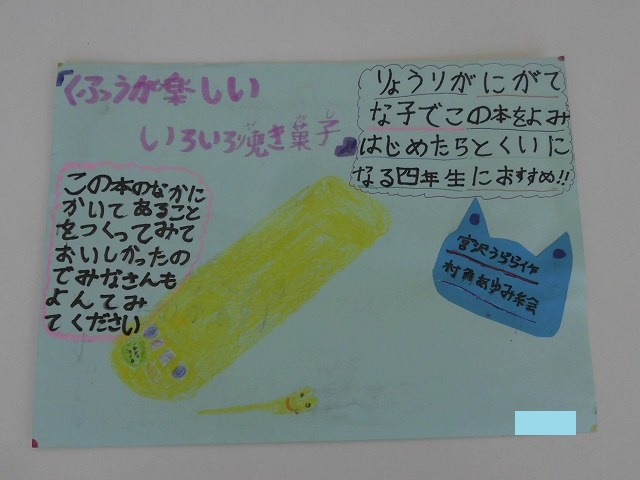 『くふうが楽しい
いろいろ焼き菓子』
りょうりがにがて
な子でこの本をよみ
はじめたらとくいに
なる四年生におすすめ!!
この本のなかに
かいてあること
をつくってみて
おいしかったの
でみなさんも
よんでみ
てください
宮沢うらら作
村角あゆみ絵